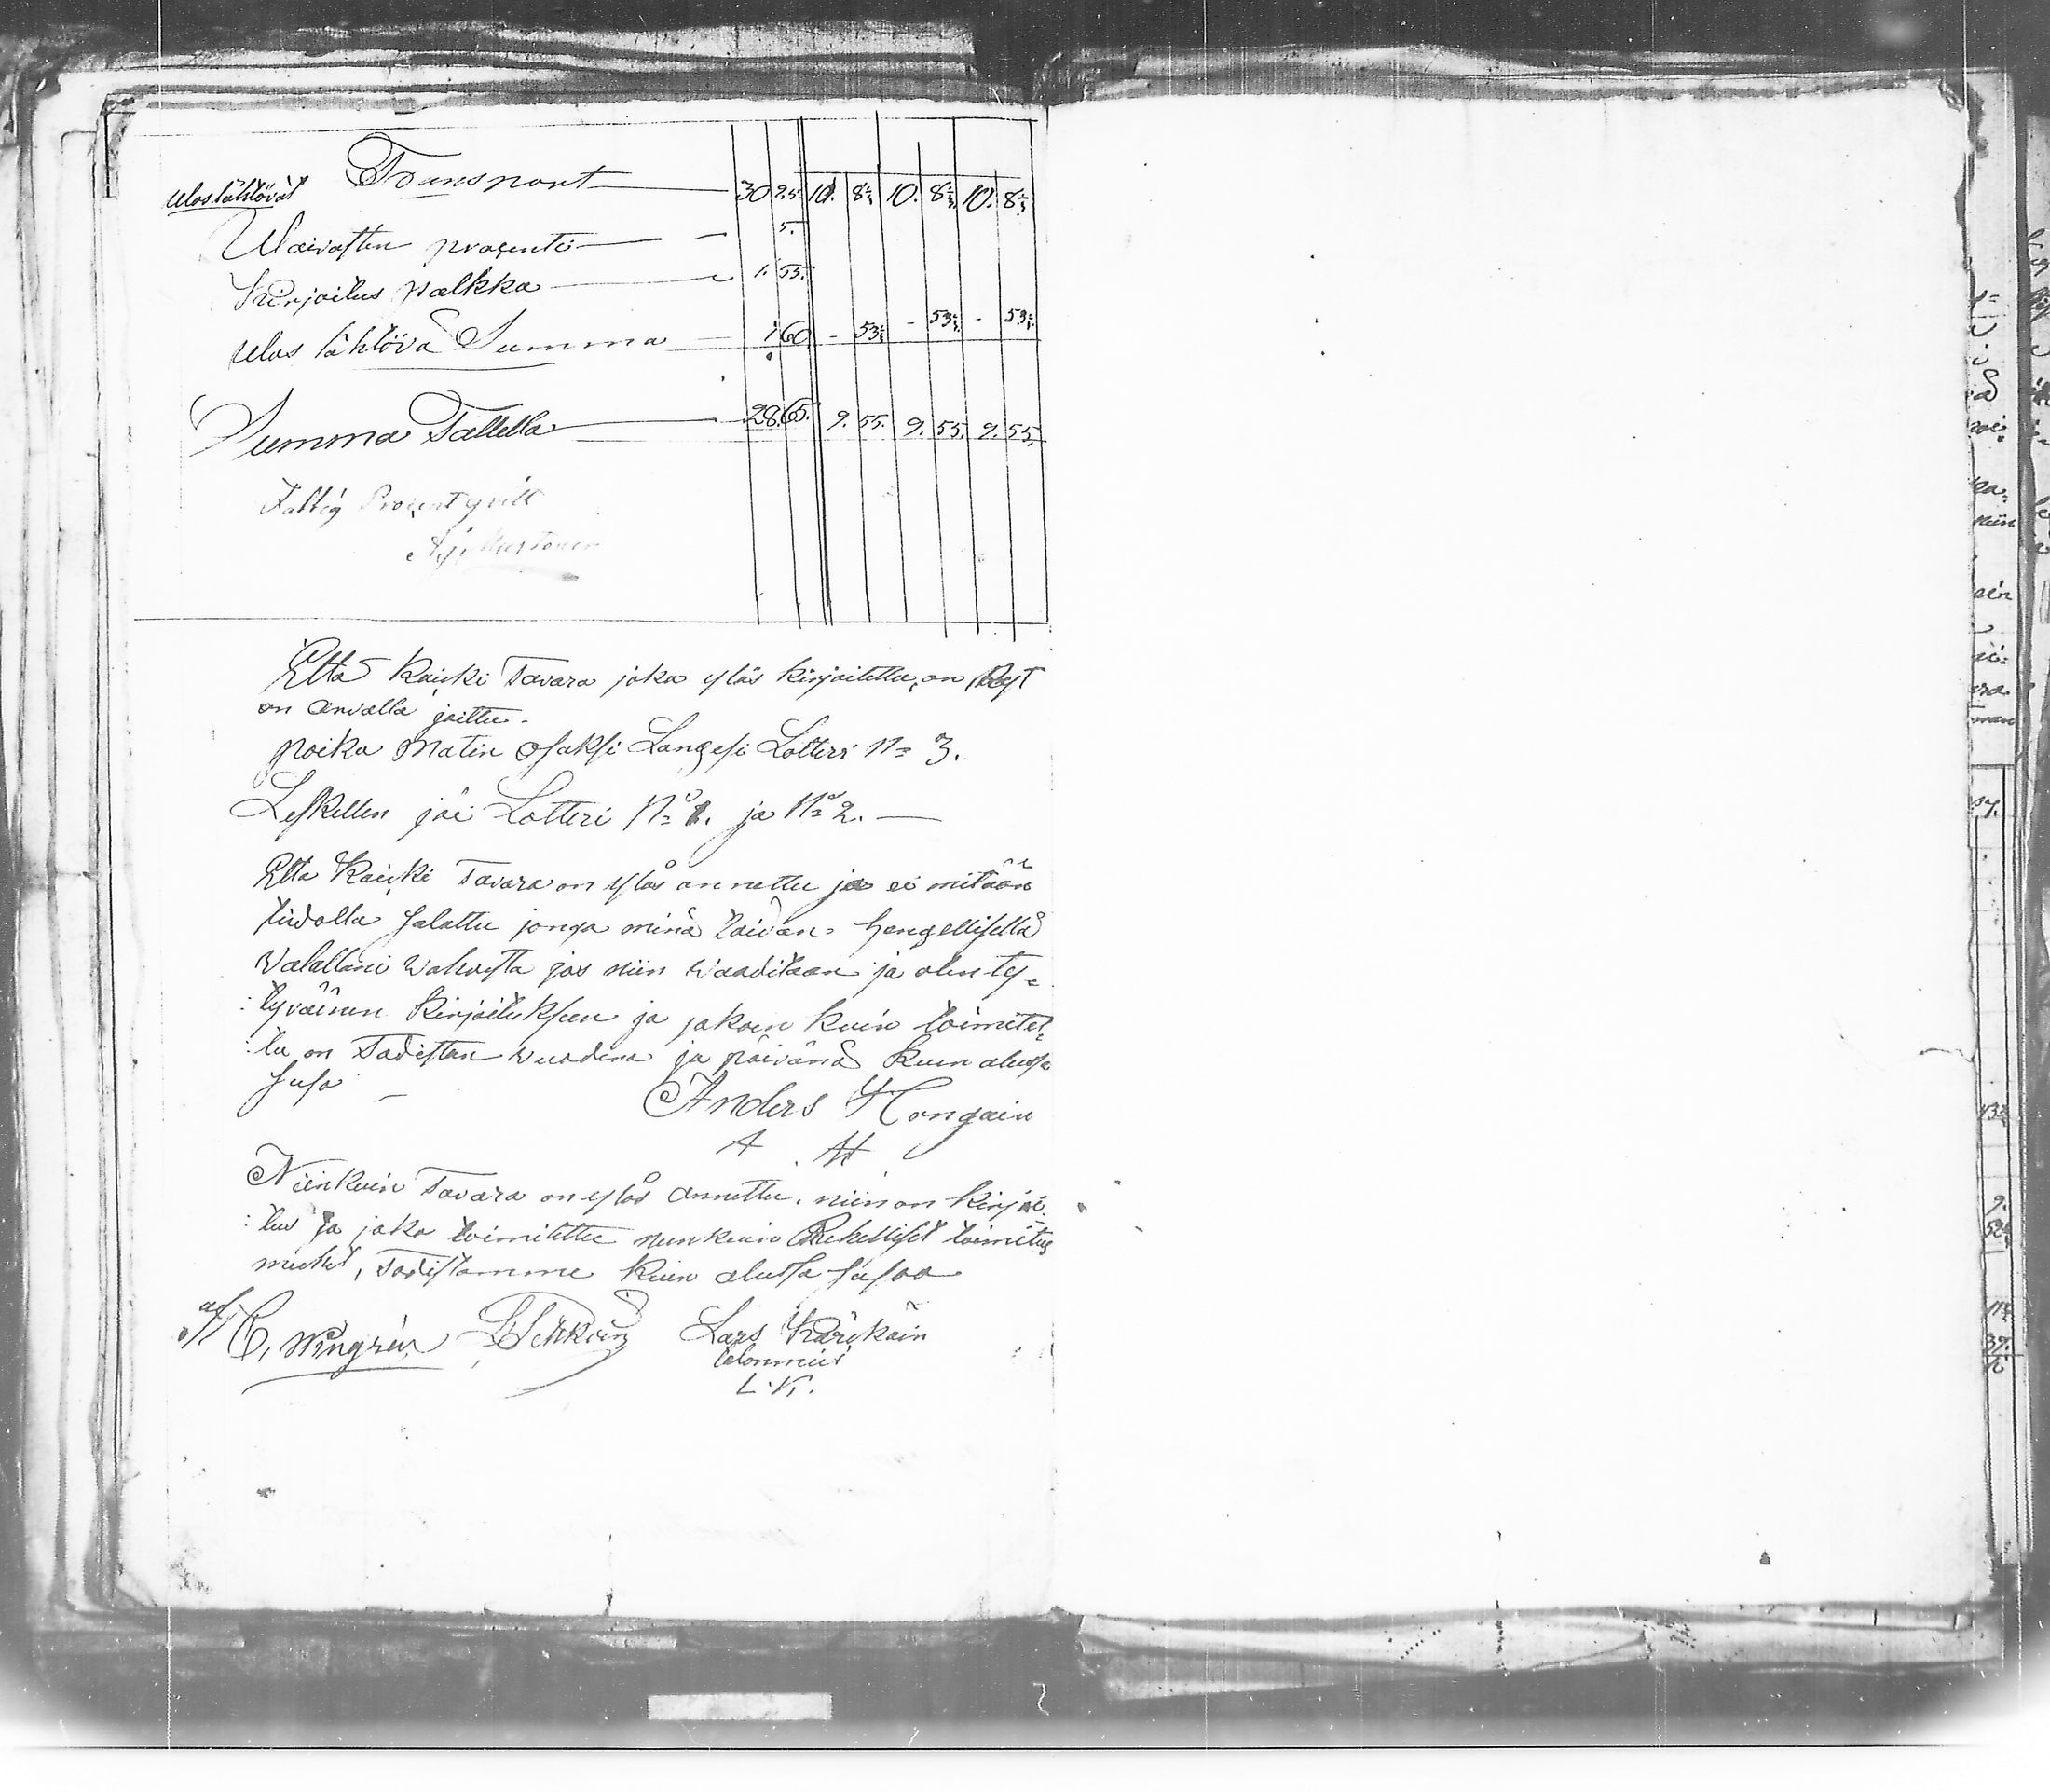 Transport 30 25. 10. 8 1/3 10. 8 1/3 10. 8 1/3
Ulos lähtövät
Waivasten prosentti 5.
Kirjoitus palkka 1. 55.
Ulos lähtövä Summa 1 60 - 53 1/3 - 53 1/3 - 53 1/3
Summa Tallella 28. 65. 9. 55. 9. 55. 9. 55.
Fattig Procent qvitt
Että Kaicki Tavara joka ylös kirjoitettu, on nyt
on arvalla jaittu.
poika Matin Osaksi Langesi Lotteri No 3.
Leskellen jäi Lotteri No 1. ja No 2.
Että Kaicki Tavara on ylös annettu ja ei mitään
tiedolla salattu jonga minä taidan hengellisellä
Walallani wahvista jos niin waaditaan ja olen ty=
:tyväinen Kirjoituksen ja jakoin kuin toimitet=
:tu on Todistan wuodena ja päivänä kuin alussa
sano
Anders Hongain
A H
Niinkuin Tavara on ylös annettu, niin on kirjoi=
:tus ja jako toimitettu niinkuin Rehelliset toimitus
miehet, Todistamme kuin alussa sanoo
C, Wingrén Lars Kärikäin
talonmies
L. K.